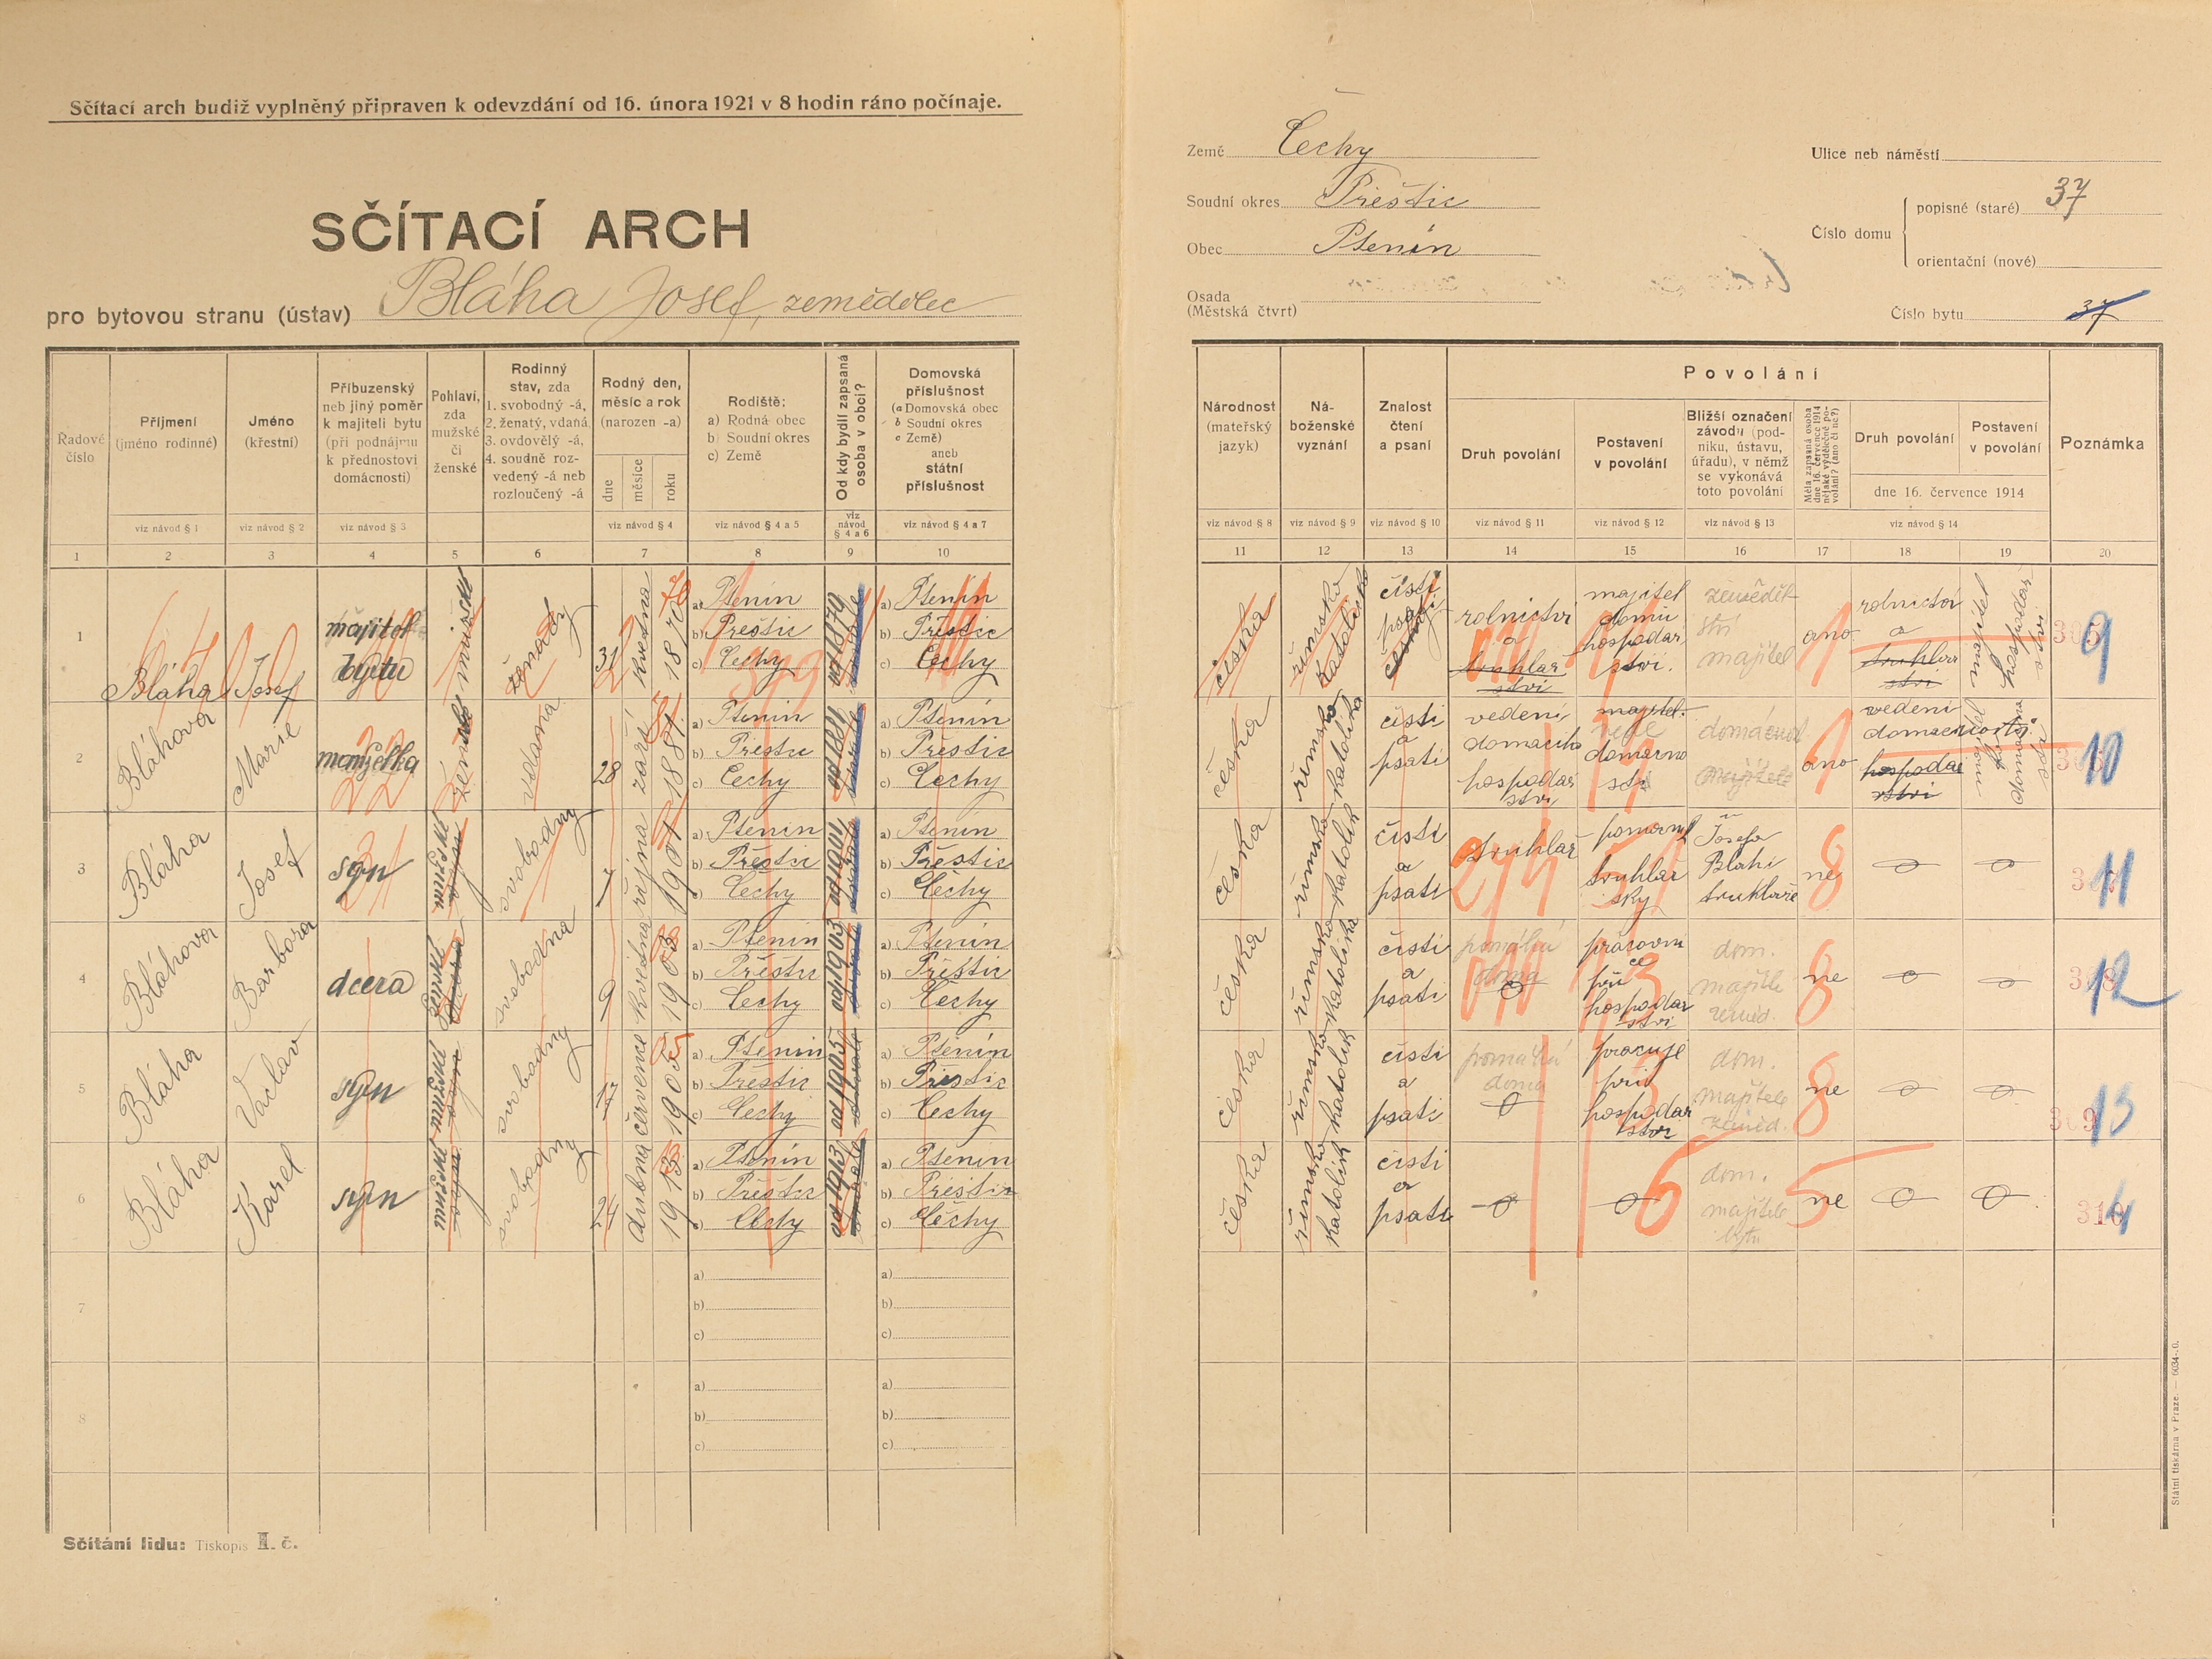 Sčítací arch budiž vyplněný připraven k odevzdání od 16. února 1921 v 8 hodin ráno počínaje.
SČÍTACÍ ARCH
pro bytovou stranu (ústav) Bláha Josef, zemědělec
Země Čechy
Soudní okres Přeštic
Obec Ptenín
Osada
(Městská čtvrt)
Ulice neb náměstí
Číslo domu
popisné (staré) 37
orientační (nové)
Číslo bytu 37
Řadové číslo
Příjmení (jméno rodinné)
Jméno (křestní)
Příbuzenský neb jiný poměr k majiteli bytu (při podnájmu k přednostovi domácnosti)
Pohlaví, zda mužské či ženské
Rodinný stav, zda 1. svobodný -á, 2. ženatý, vdaná, 3. ovdovělý -á, 4. soudně rozvedený -á neb rozloučený -á
Rodný den, měsíc a rok (narozen -a)
dne měsíce roku
Rodiště: a) Rodná obec b) Soudní okres c) Země
Od kdy bydlí zapsaná osoba v obci?
Domovská příslušnost (a Domovská obec b Soudní okres c Země) aneb státní příslušnost
Národnost (mateřský jazyk)
Náboženské vyznání
Znalost čtení a psaní
Povolání
Druh povolání
Postavení v povolání
Bližší označení závodu (podniku, ústavu, úřadu), v němž se vykonává toto povolání
Měla zapsaná osoba dne 16. července 1914 nějaké výdělečné povolání? (ano či ne?)
Druh povolání
Postavení v povolání
dne 16. července 1914
Poznámka
viz návod § 1 viz návod § 2 viz návod § 3 viz návod § 4 viz návod § 4 a 5 viz návod § 4 a 6 viz návod § 4 a 7
viz návod § 8 viz návod § 9 viz návod § 10 viz návod § 11 viz návod § 12 viz návod § 13 viz návod § 14
1 2 3 4 5 6 7 8 9 10 11 12 13 14 15 16 17 18 19 20
1 Bláha Josef majitel bytu mužské ženatý 31 května 1870 a) Ptenín b) Přeštic c) Čechy od 1870 a) Ptenín b) Přeštic c) Čechy
česka římsko katolické čísti psati rolnictví a truhlářství majitel domu hospodářství. zemědělství majitel ano rolnictví a truhlářství majitel hospodářství 9
2 Bláhova Marie manželka ženské vdaná 28 září 1881 a) Ptenín b) Přeštic c) Čechy od 1881 a) Ptenín b) Přeštic c) Čechy
česka římsko katolická čísti a psati vedení domacího hospodářství majitel. vede domacnost domacnost ano vedení domacnosti hospodářství 10
3 Bláha Josef syn svobodný 7 října 1901 a) Ptenín b) Přeštic c) Čechy od 1901 a) Ptenín b) Přeštic c) Čechy
česka římsko katolík čísti a psati truhlář pomocník truhlářsky Josefa Bláhi truhlaře ne 11
4 Bláhova Barbora dcera svobodna 9 května 1903 a) Ptenín b) Přeštic c) Čechy od 1903 a) Ptenín b) Přeštic c) Čechy
česka římsko katolička čísti a psati pomáhá doma pracovnice při hospodářství dom. majitele zeměd. ne 12
5 Bláha Václav syn svobodný 17 července 1905 a) Ptenín b) Přeštic c) Čechy od 1905 a) Ptenín b) Přeštic c) Čechy
česka římsko katolík čísti a psati pomáhá doma pracuje při hospodářství dom. majitele zeměd. ne 13
6 Bláha Karel syn svobodný 24 dubna 1913 a) Ptenín b) Přeštic c) Čechy od 1913 a) Ptenín b) Přeštic c) Čechy
česka římsko katolík čísti a psati dom. majitele bytu ne
7 a) b) c) a) b) c)
8 a) b) c) a) b) c)
Sčítání lidu: Tiskopis I. č.
Státní tiskárna v Praze. — 6034-.0.